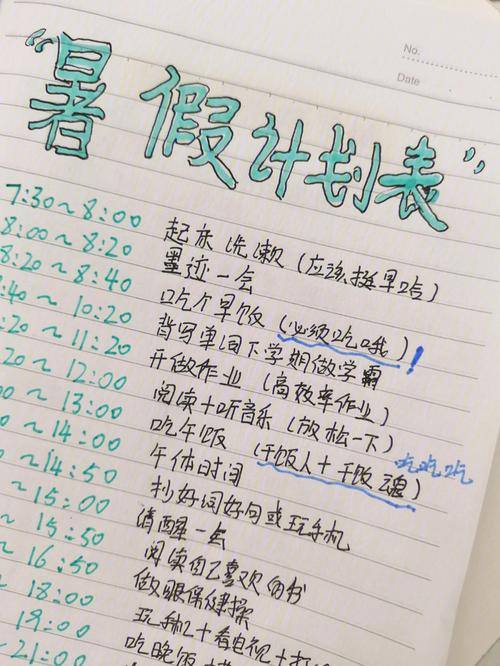 No.
Date
“暑假计划表”
7:30~8:00 起床洗漱(应该挺早哈)
8:00~8:20 墨迹一会
8:20~8:40 吃个早饭(必须吃哦)!
:40~10:20 背写单词下学期做学霸
:20~11:20 开做作业(高效率作业)
20~12:00 阅读+听音乐(放松一下)
0~13:00 吃午饭(干饭人+干饭魂)吃吃吃
~14:00 午休时间
~14:50 扒好词好句或玩手机
~15:00 清醒一会
~15:50 阅读自己喜欢的书
~16:50 做眼保健操
~18:00 玩手机+看电视+打
19:00 吃晚饭+
~21:00